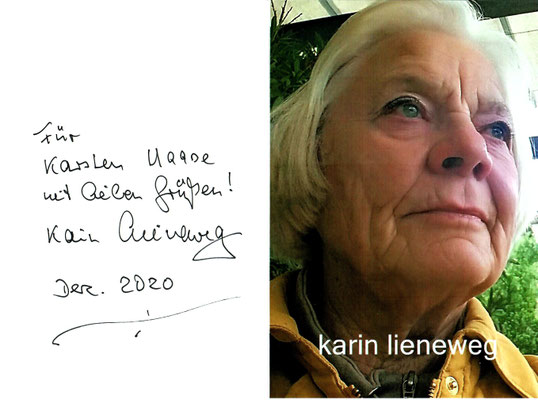 für
Karsten Haase
mit lieben Grüßen!
Karin Lieneweg
Dez. 2020
karin lieneweg